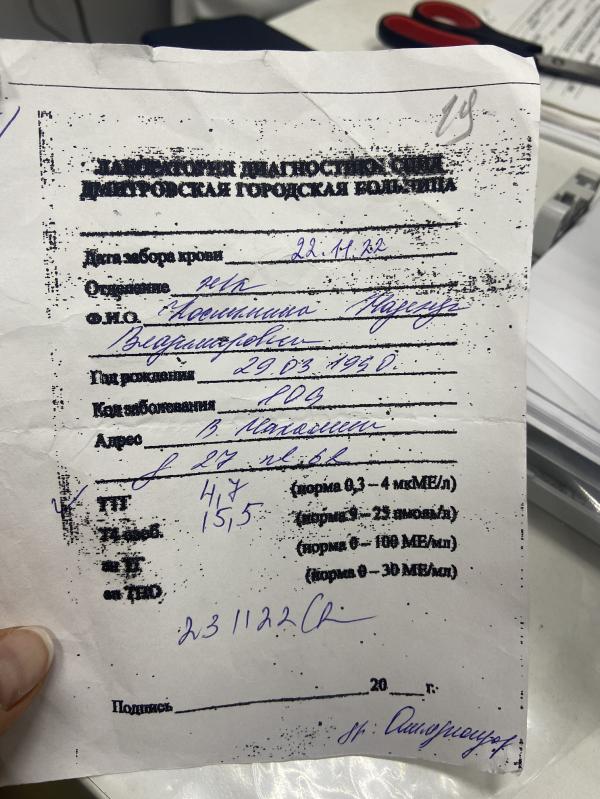 19
ЛАБОРАТОРИЯ ДИАГНОСТИКИ СПИД
ДМИТРОВСКАЯ ГОРОДСКАЯ БОЛЬНИЦА
Дата забора крови 22.11.22
Отделение ж/к
Ф.И.О.
Владимировна
Год рождения 29.03.1990.
Код заболевания 109
Адрес В.
д 27 кв
ТТГ 4,7 (норма 0,3 – 4 мкМЕ/л)
Т4 своб. 15,5 (норма 9 – 25 пмоль/л)
ат ТГ (норма 0 – 100 МЕ/мл)
ат ТПО (норма 0 – 30 МЕ/мл)
231122
Подпись 20 г.
вр: